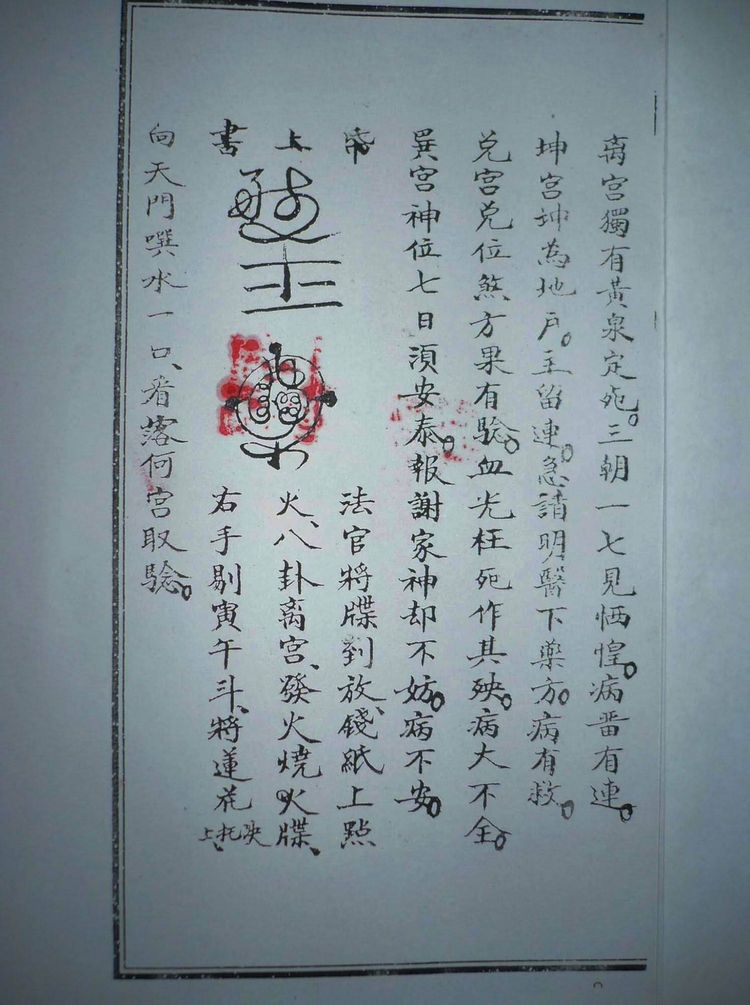 离宫獨有黃泉定死。三朝一七見恓惶。病畨有連。
坤宫坤為地户。主留連。急請明醫下藥方。病有救。
兑宫兑位煞方果有騐。血光枉死作其殃。病大不全。
巽宫神位七日湏安泰。報謝家神却不妨。病不安。
帋上書
法官將牒到放、錢紙上㸃
火、八卦离宫、發火燒火牒、
右手剔寅午斗、將蓮花上托
向天門噀水一口、看落何宫取騐。